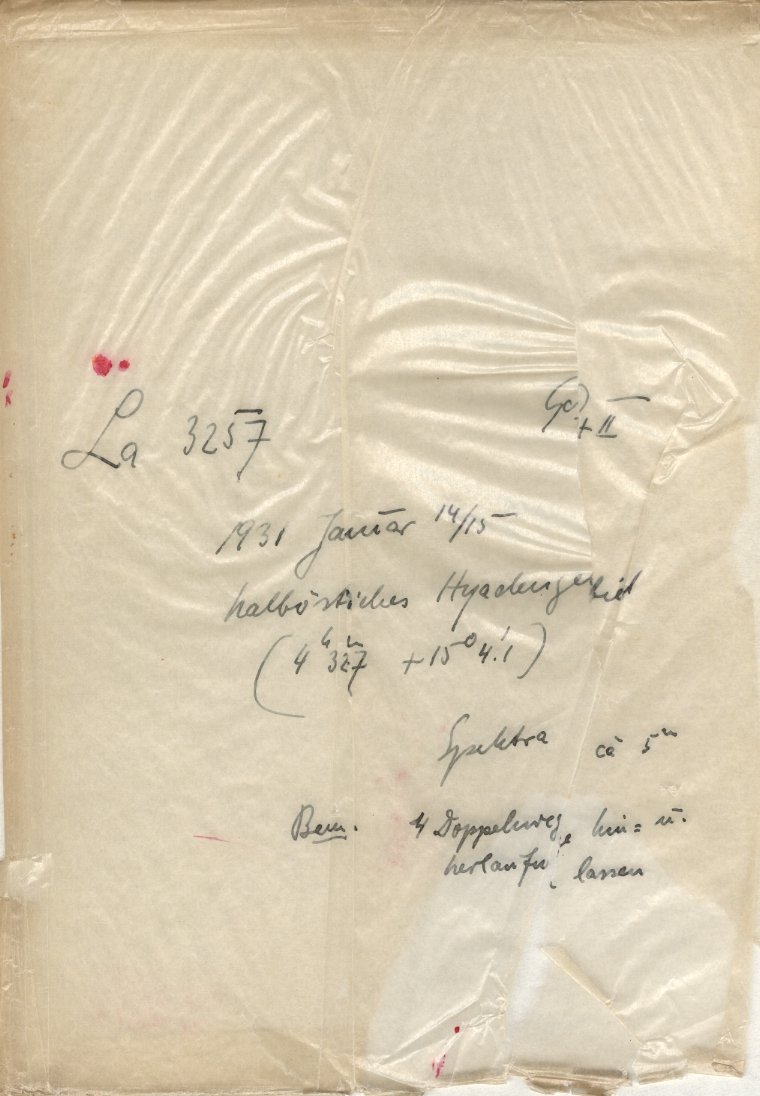 La 3257
+ II
1931 Januar 14/15
halböstliches Hyadengebiet
(4ʰ 32ᵐ7 +15° 4.'1)
Spektra ca 5ᵐ
Bem. 4 Doppelwege hin= u.
herlaufen lassen